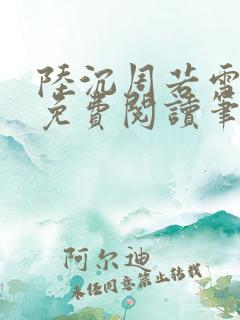 陸沉周若雪
免費閱讀筆
阿尔迪
未经同意禁止转载